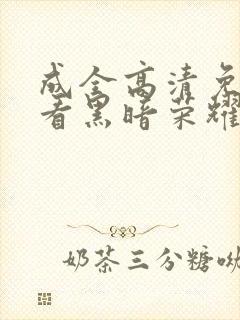 成全高清免
看黑暗荣耀
奶茶三分糖呦